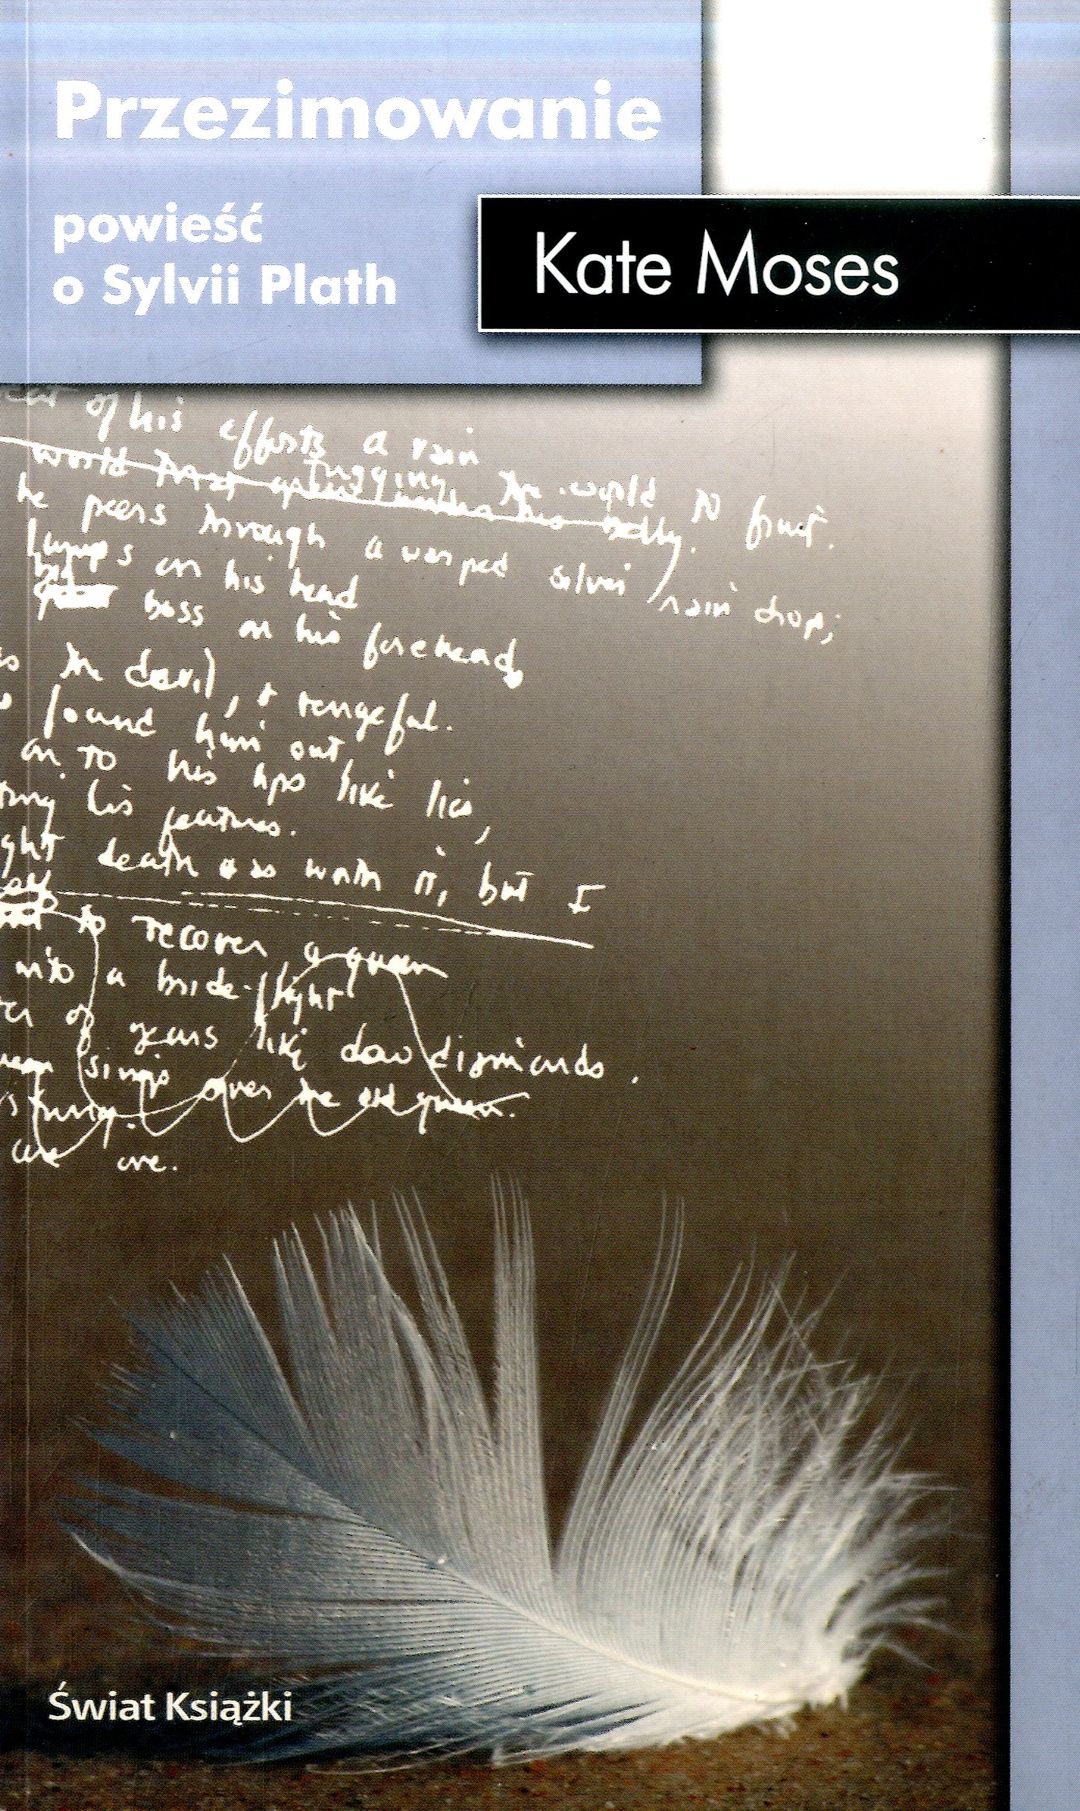 Przezimowanie
powieść
o Sylvii Plath
Kate Moses
of his efforts a rain
world tugging the world to fruit.
he peers through a warped silver rain drop;
lumps on his head
big boss on his forehead,
devil, & vengeful.
found him out
on to his lips like lies,
his features.
death was worth it, but I
to recover a queen
into a bride-flight
of years like dew diamonds.
sings over the old queen.
are are.
Świat Książki